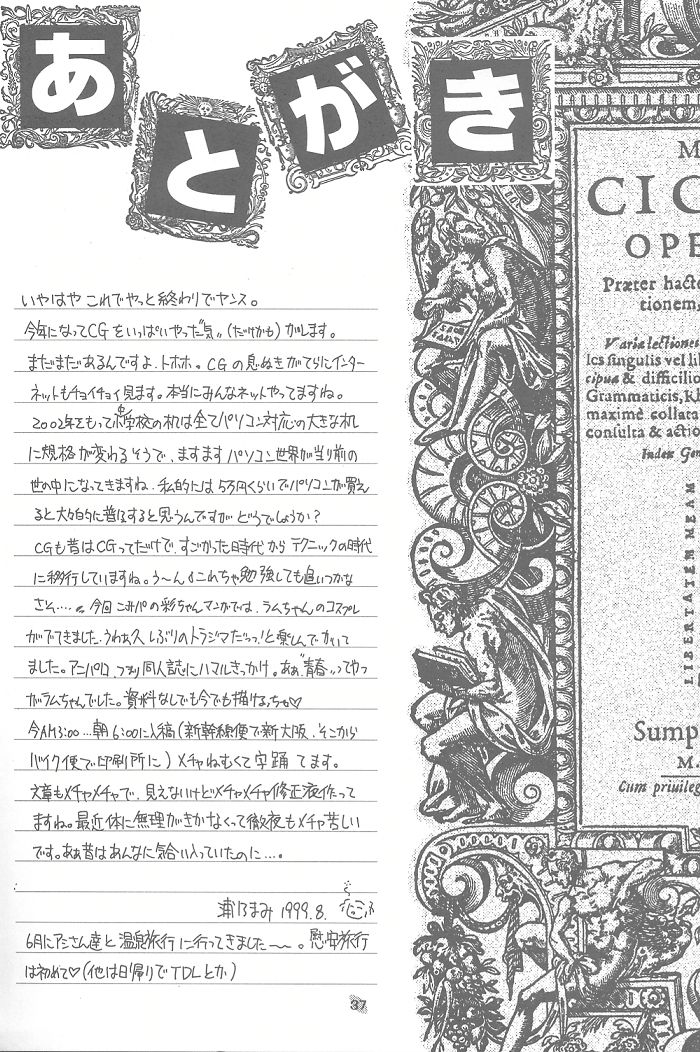 あとがき
いやはや これでやっと終わりでヤンス。
今年になってCGをいっぱいやった"気"(だけかも)がします。
まだまだあるんですよ、トホホ。CGの息ぬきがてらにインター
ネットもチョイチョイ見ます。本当にみんなネットやってますね。
2002年をもって小学校の机は全てパソコン対応の大きな机
に規格が変わるそうで、ますますパソコン世界が当り前の
世の中になってきますね。私的には5万円くらいでパソコンが買え
ると大々的に普及すると思うんですがどうでしょうか?
CGも昔はCGってだけで、すごかった時代からテクニックの時代
に移行していますね。う〜んこれちゃ勉強しても追いつかな
さそ‥‥。今回こみパの彩ちゃんマンガでは、ラムちゃんのコスプレ
がでてきました。うわぁ久しぶりのトラジマだっっ!と楽しんでかいて
ました。アニパロ、つまり同人誌にハマルきっかけ。あぁ"青春"ってやつ
がラムちゃんでした。資料なしでも今でも描けるっちゃ♡
今AM3:00…朝6:00に入稿(新幹線便で新大阪、そこから
バイク便で印刷所に)メチャねむくて字踊ってます。
文章もメチャメチャで、見えないけどメチャメチャ修正液作って
ますね。最近体に無理がきかなくって徹夜もメチャ苦しい
です。あぁ昔はあんなに気合い入っていたのに…。
浦乃まみ 1999.8.
6月にアシさん達と温泉旅行に行ってきました〜〜。慰安旅行
は初めて♡(他は日帰りでTDLとか)
37
M
CIC
OPE
Præter hacte
tionem,
Variæ lectiones
les singulis vel li
cipua & difficilio
Grammaticis, Rh
maximè collata
consulta & actio
Index Gen
LIBERTATEM MEAM
Sump
M.
Cum priuileg